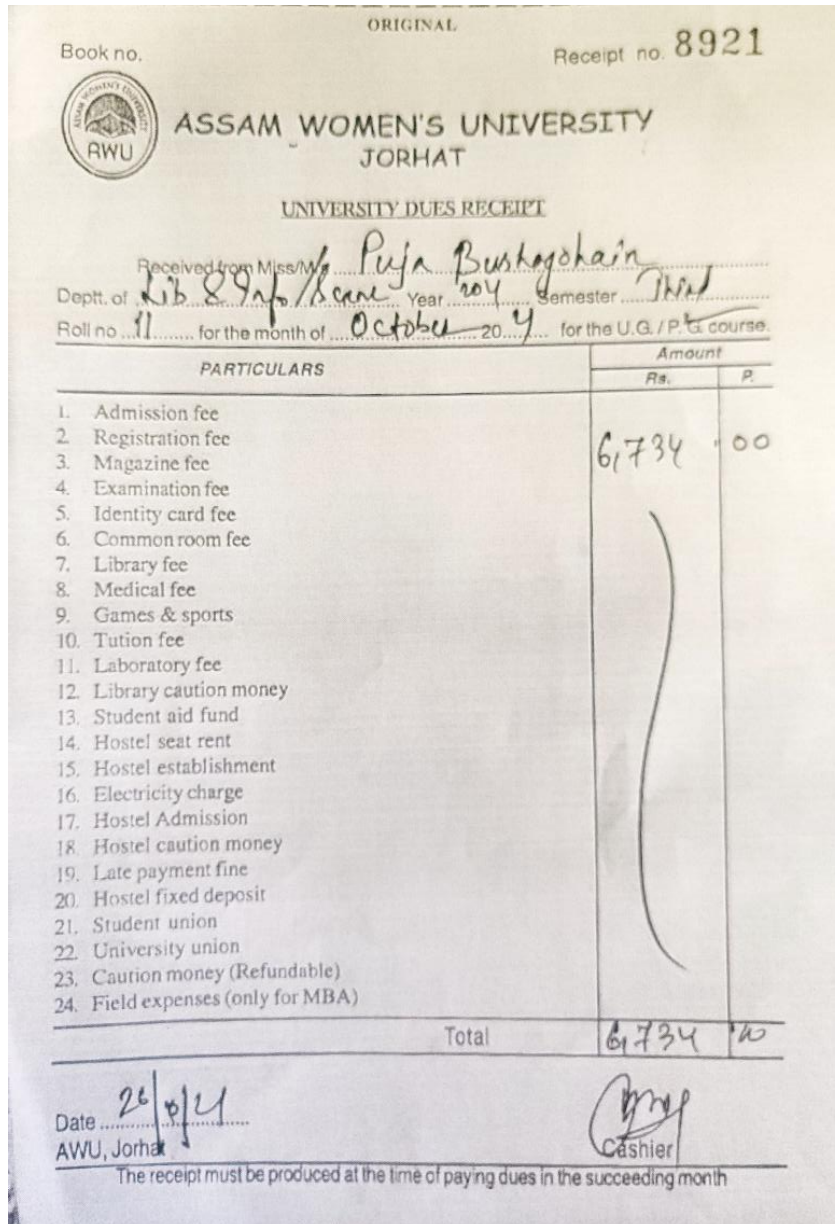 ORIGINAL
Book no. Receipt no. 8921
ASSAM WOMEN'S UNIVERSITY
AWU
ASSAM WOMEN'S UNIVERSITY
JORHAT
UNIVERSITY DUES RECEIPT
Received from Miss/Ms Puja
Deptt. of Lib & Info/ Year Semester Third
Roll no 11 for the month of October 20 for the U.G. / P.G. course.
PARTICULARS Amount
Rs. P.
1. Admission fee
2. Registration fee 6,734 00
3. Magazine fee
4. Examination fee
5. Identity card fee
6. Common room fee
7. Library fee
8. Medical fee
9. Games & sports
10. Tution fee
11. Laboratory fee
12. Library caution money
13. Student aid fund
14. Hostel seat rent
15. Hostel establishment
16. Electricity charge
17. Hostel Admission
18. Hostel caution money
19. Late payment fine
20. Hostel fixed deposit
21. Student union
22. University union
23. Caution money (Refundable)
24. Field expenses (only for MBA)
Total 6,734 00
Date
AWU, Jorhat Cashier
The receipt must be produced at the time of paying dues in the succeeding month